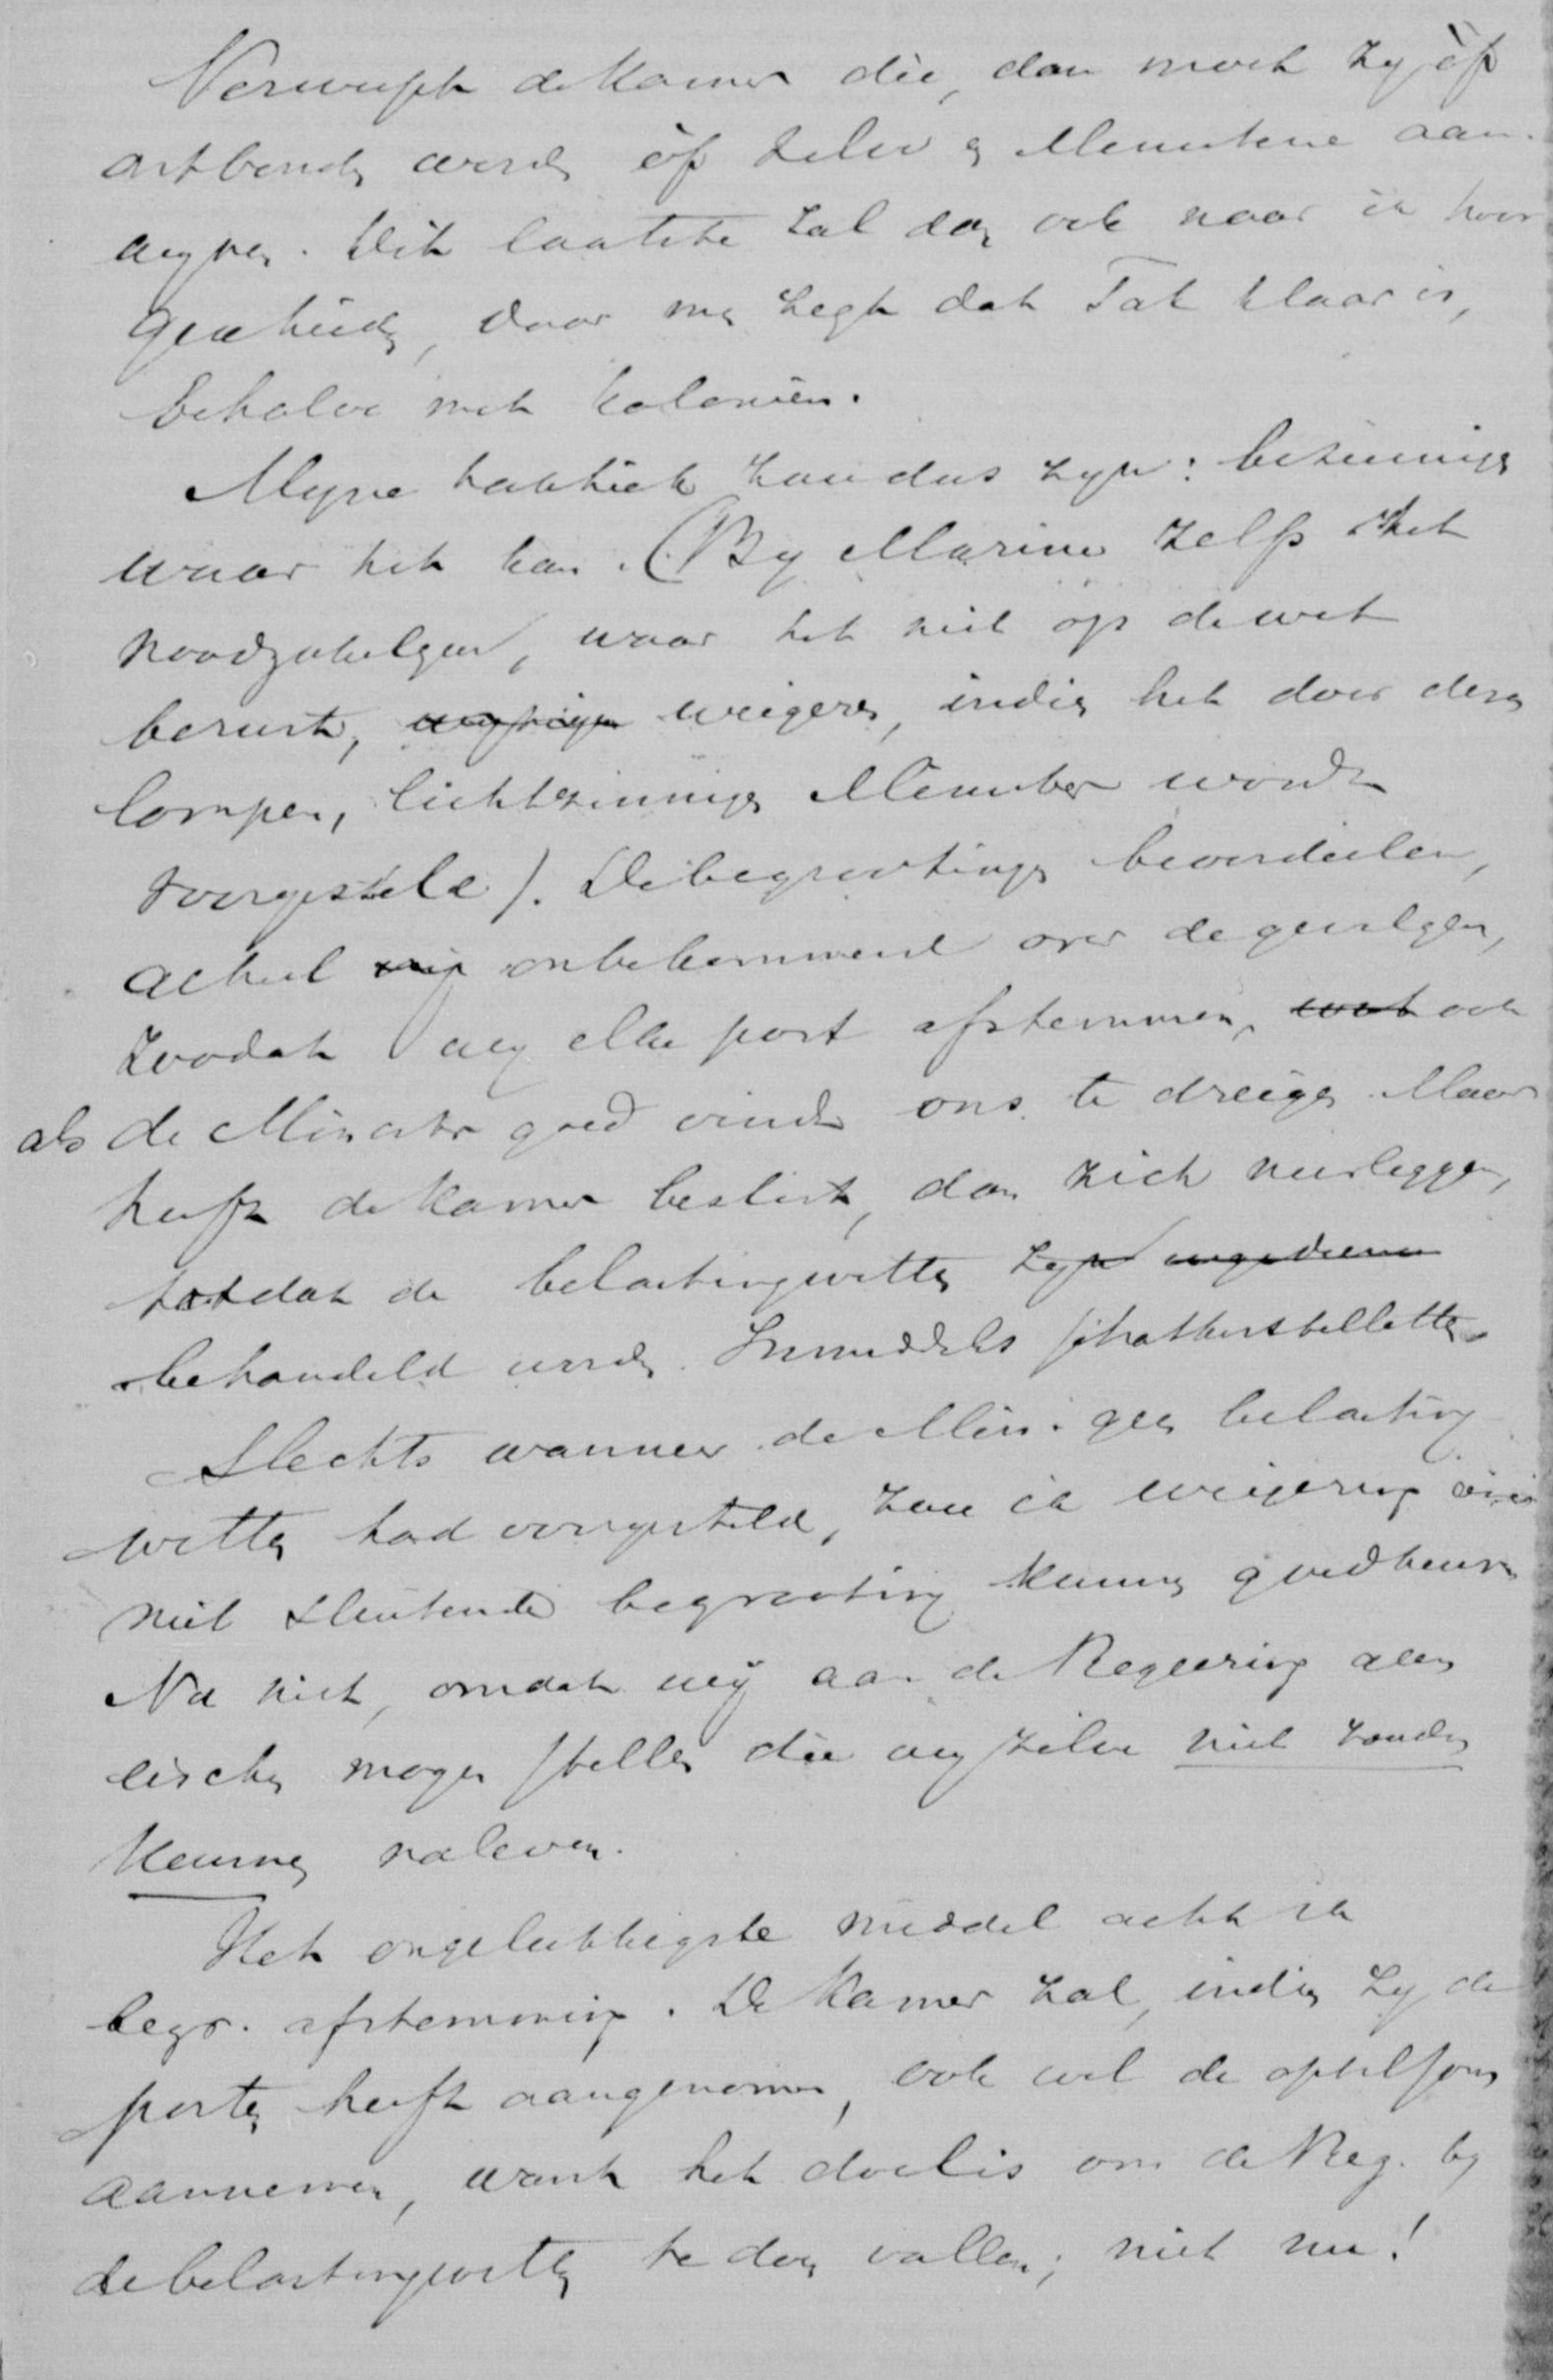 Verwerpt de Kamer die, dan moet zy òf
ontbonden worden òf zelve 's Ministerie aan-
wyzen. Dit laatste zal dan ook naar ik hoor
geschieden, daar men zegt dat Tak klaar is,
behalve met koloniën.
Myne taktiek zou dus zyn: bezuinigen
waar het kan. (By Marine zelfs het
noodzakelyke, waar het niet op de wet
berust, weigeren, indien het door dezen
lompen, lichtzinnigen Minister wordt
voorgesteld). De begrootingen beoordeelen,
actueel onbekommerd over de gevolgen,
zoodat wy elke post afstemmen, ook
als de Minister goed vindt ons te dreigen. Maar
heeft de Kamer beslist, dan zich neerleggen,
totdat de belastingwetten
behandeld worden. Inmiddels schatkistbiljetten.
Slechts wanneer de Min. geen belasting
wetten had voorgesteld, zou ik weigering eener
niet sluitende begrooting kunnen goedkeuren
Nu niet, omdat wij aan de Regeering geen
eischen mogen stellen die wy zelve niet zouden
kunnen naleven.
Het ongelukkigste middel acht ik
begr. afstemming. De Kamer zal, indien zy de
posten heeft aangenomen, ook wel de optelsom
aannemen, want het doel is om de Reg. by
de belastingwetten te doen vallen; niet nu!